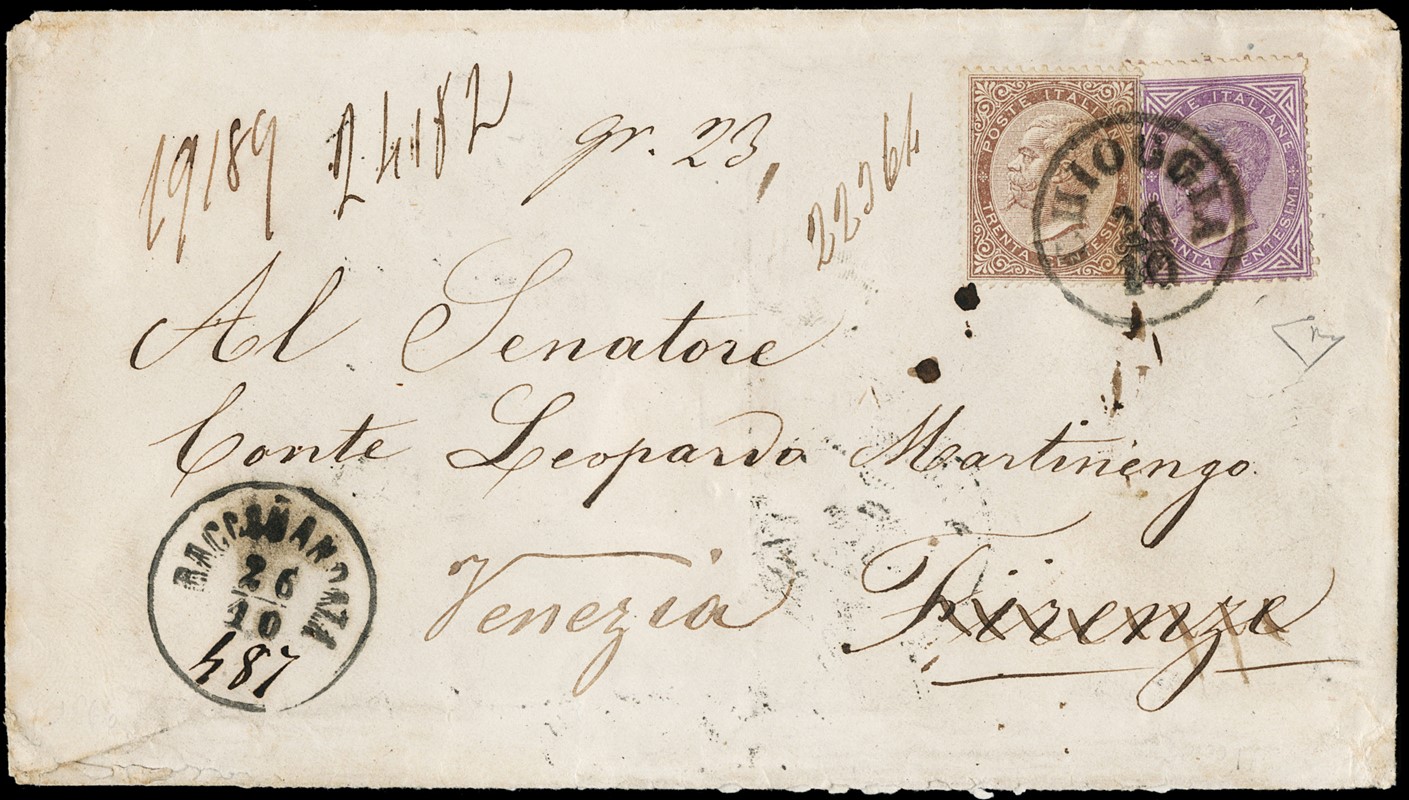 19189 24182 gr. 23,
22364
POSTE ITALIANE
TRENTA CENTESIMI
POSTE ITALIANE
SESSANTA CENTESIMI
CHIOGGIA
26
10
Al Senatore
Conte Leopardo Martinengo
Venezia Firenze
RACCOMANDATA
26
10
487